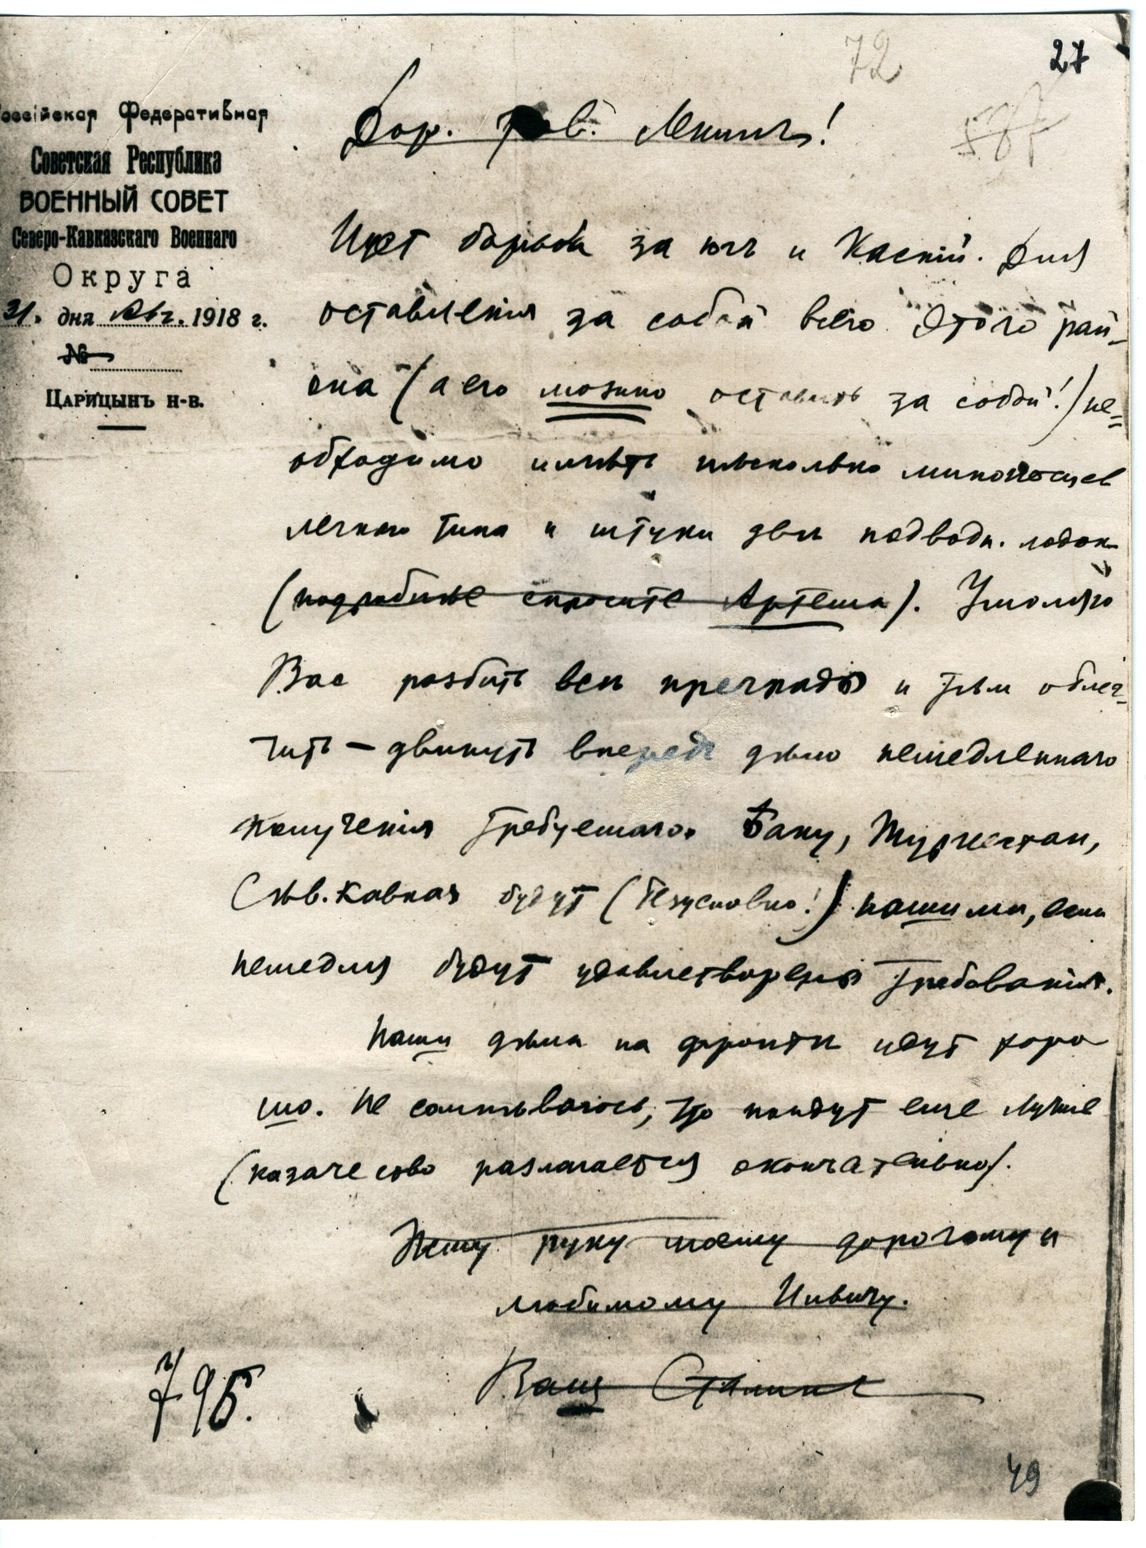 72
27
Россійская Федеративная
Советская Республика
ВОЕННЫЙ СОВЕТ
Северо-Кавказскаго Военнаго
Округа
31. дня Авг. 1918 г.
№
Царицынъ н-в.
Дор. тов. Ленинъ!
Идет борьба за югъ и Каспій. Для
оставленія за собой всего этого рай-
она (а его можно оставить за собой!) не=
обходимо имѣть нѣсколько миноносцев
легкаго типа и штуки двѣ подводн. лодок
(подробнѣе спросите Артема). Умоляю
Вас разбить всѣ преграды и тѣм облег-
чить – двинуть впередъ дѣло немедленнаго
полученія требуемаго. Баку, Туркестан,
Сѣв. Кавказ будут (безусловно!) нашими, если
немедля будут удовлетворены требованія.
Наши дѣла на фронтѣ идут хоро
шо. Не сомнѣваюсь, что пойдут еще лучше
(казачество разлагается окончательно).
Жму руку моему дорогому и
любимому Ильичу.
Ваш Сталин
795.
49